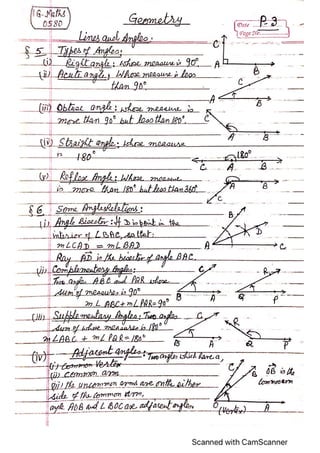 I.G. Maths
0580
Geometry
Date
P-3
Page No.
Lines and Angles:
§ 5 Types of Angles:
(i) Right angle: whose measure is 90°.
C
A
B
(ii) Acute angle: Whose measure is less
than 90°.
C
A
B
(iii) Obtuse angle: whose measure is
more than 90° but less than 180°.
C
A
B
(iv) Straight angle: whose measure
is 180°
180°
C
A
B
(v) Reflex Angle: Whose measure
is more than 180° but less than 360°.
A
B
C
§ 6 Some Angles Relations:
(i) Angle Bisector: If D is point in the
interior of ∠BAC, so that:
m∠CAD = m∠BAD
Ray AD is the bisector of angle BAC.
B
D
A
C
(ii) Complementary Angles:
Two angles ABC and PQR whose
sum of measures is 90°
m∠ABC + m∠PQR = 90°
C
B
A
R
Q
P
(iii) Supplementary Angles: Two angles
sum of whose measures is 180°
m∠ABC + m∠PQR = 180°
C
B
A
R
Q
P
(iv) Adjacent Angles: Two angles which have a,
(i) Common Vertex
(ii) Common arm
(iii) The uncommon arms are on the either
side of the common arm.
angle AOB and ∠BOC are adjacent angles
C
B
OB is the
common arm
O
(Vertex)
A
Scanned with CamScanner